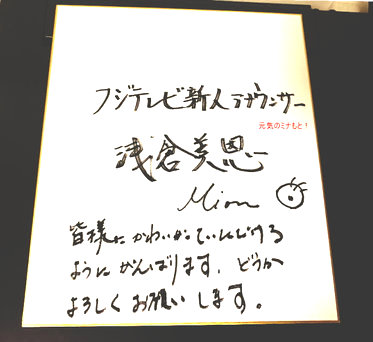 フジテレビ新人アナウンサー
元気のミナもと！
浅倉美恩
Mion
皆様にかわいがっていただける
ようにがんばります。どうか
よろしくお願いします。